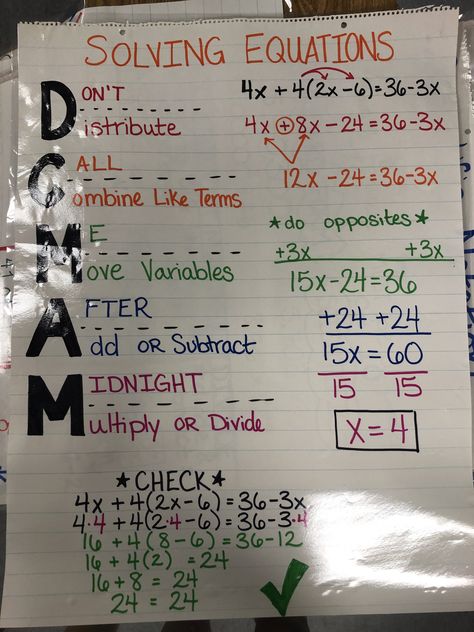 SOLVING EQUATIONS
DON'T
Distribute
4x + 4(2x - 6) = 36 - 3x
4x + 8x - 24 = 36 - 3x
CALL
Combine Like Terms
12x - 24 = 36 - 3x
ME
Move Variables
*do opposites*
+3x +3x
15x - 24 = 36
AFTER
Add OR Subtract
+24 +24
15x = 60
MIDNIGHT
Multiply OR Divide
15 15
x = 4
*CHECK*
4x + 4(2x - 6) = 36 - 3x
4·4 + 4(2·4 - 6) = 36 - 3·4
16 + 4(8 - 6) = 36 - 12
16 + 4(2) = 24
16 + 8 = 24
24 = 24